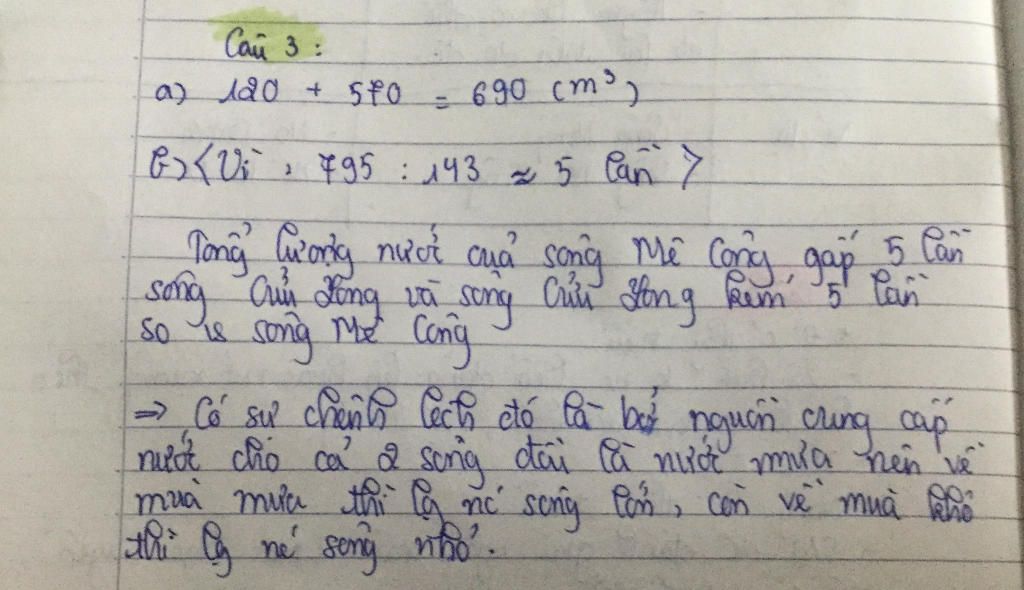 Câu 3 :
a) 120 + 570 = 690 (m³)
b) <Vì , 795 : 143 ≈ 5 lần >
Tổng lượng nước của sông Mê Công gấp 5 lần
sông Cửu Long và sông Cửu Long kém 5 lần
so vs sông Mê Công
=> Có sự chênh lệch đó là bởi nguồn cung cấp
nước cho cả 2 sông đều là nước mưa nên về
mùa mưa thì lg nc sông lớn, còn về mùa khô
thì lg nc sông nhỏ.